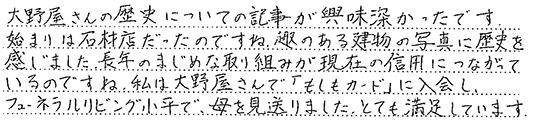 大野屋さんの歴史についての記事が興味深かったです.
始まりは石材店だったのですね.趣のある建物の写真に歴史を
感じました.長年のまじめな取り組みが現在の信用につながって
いるのですね.私は大野屋さんで「もしもカード」に入会し、
フューネラルリビング小平で、母を見送りました.とても満足しています.